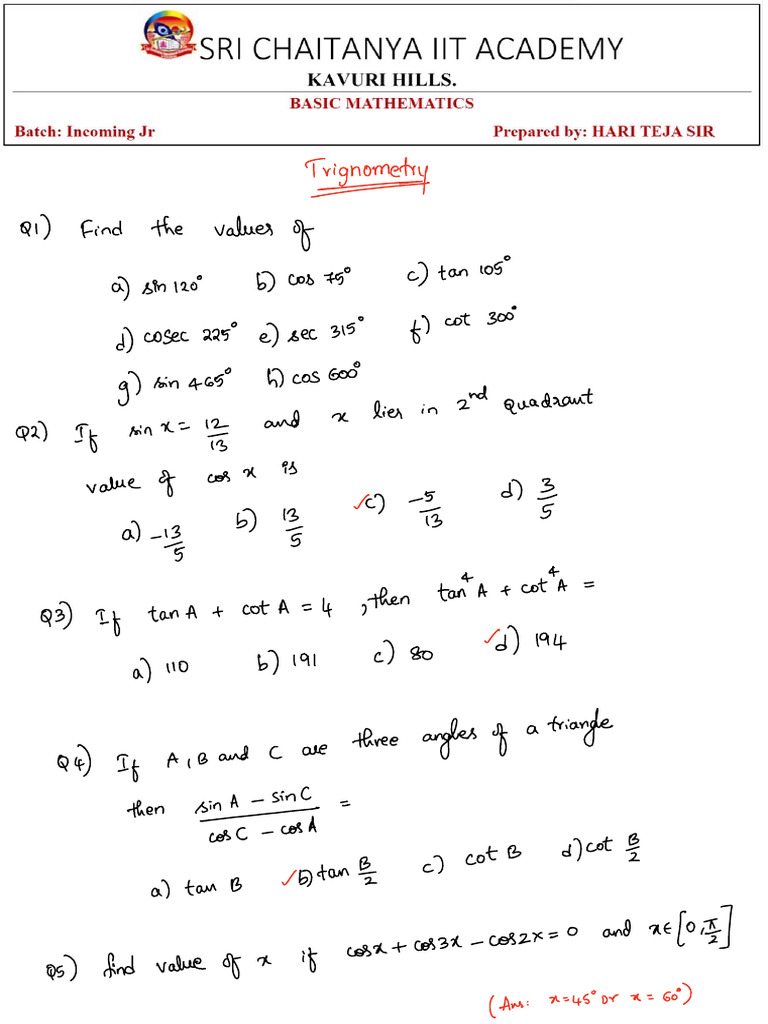 SRI CHAITANYA IIT ACADEMY
KAVURI HILLS.
BASIC MATHEMATICS
Batch: Incoming Jr Prepared by: HARI TEJA SIR
Trignometry
Q1) Find the values of
a) sin 120° b) cos 75° c) tan 105°
d) cosec 225° e) sec 315° f) cot 300°
g) sin 465° h) cos 600°
Q2) If sin x = 12/13 and x lies in 2nd Quadrant
value of cos x is
a) -13/5 b) 13/5 ✓c) -5/13 d) 3/5
Q3) If tan A + cot A = 4, then tan⁴ A + cot⁴ A =
a) 110 b) 191 c) 80 ✓d) 194
Q4) If A, B and C are three angles of a triangle
then (sin A - sin C)/(cos C - cos A) =
a) tan B ✓b) tan B/2 c) cot B d) cot B/2
Q5) find value of x if cosx + cos3x - cos2x = 0 and x ∈ [0, π/2]
(Ans: x = 45° or x = 60°)